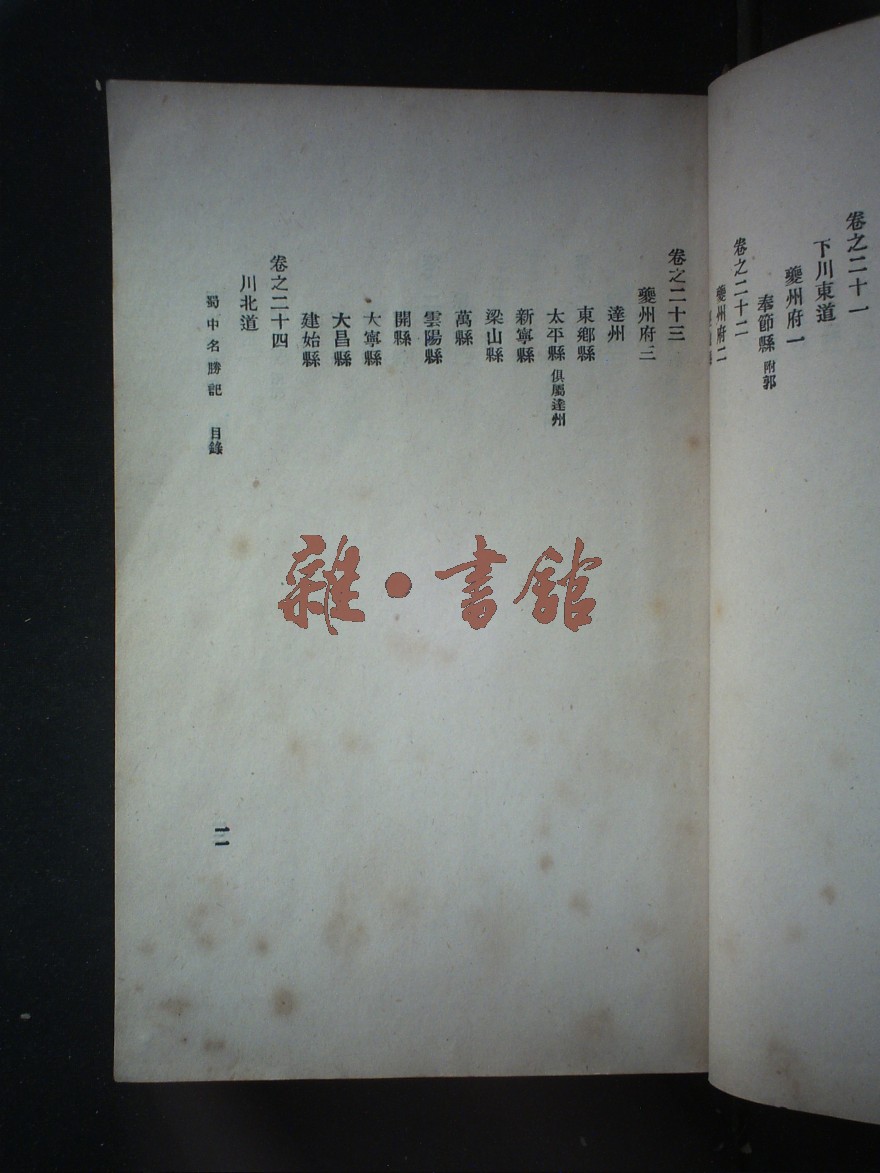 卷之二十一
下川東道
夔州府一
奉節縣 附郭
卷之二十二
夔州府二
卷之二十三
夔州府三
達州
東鄉縣
太平縣 俱屬達州
新寧縣
梁山縣
萬縣
雲陽縣
開縣
大寧縣
大昌縣
建始縣
卷之二十四
川北道
蜀中名勝記 目錄
雜·書館